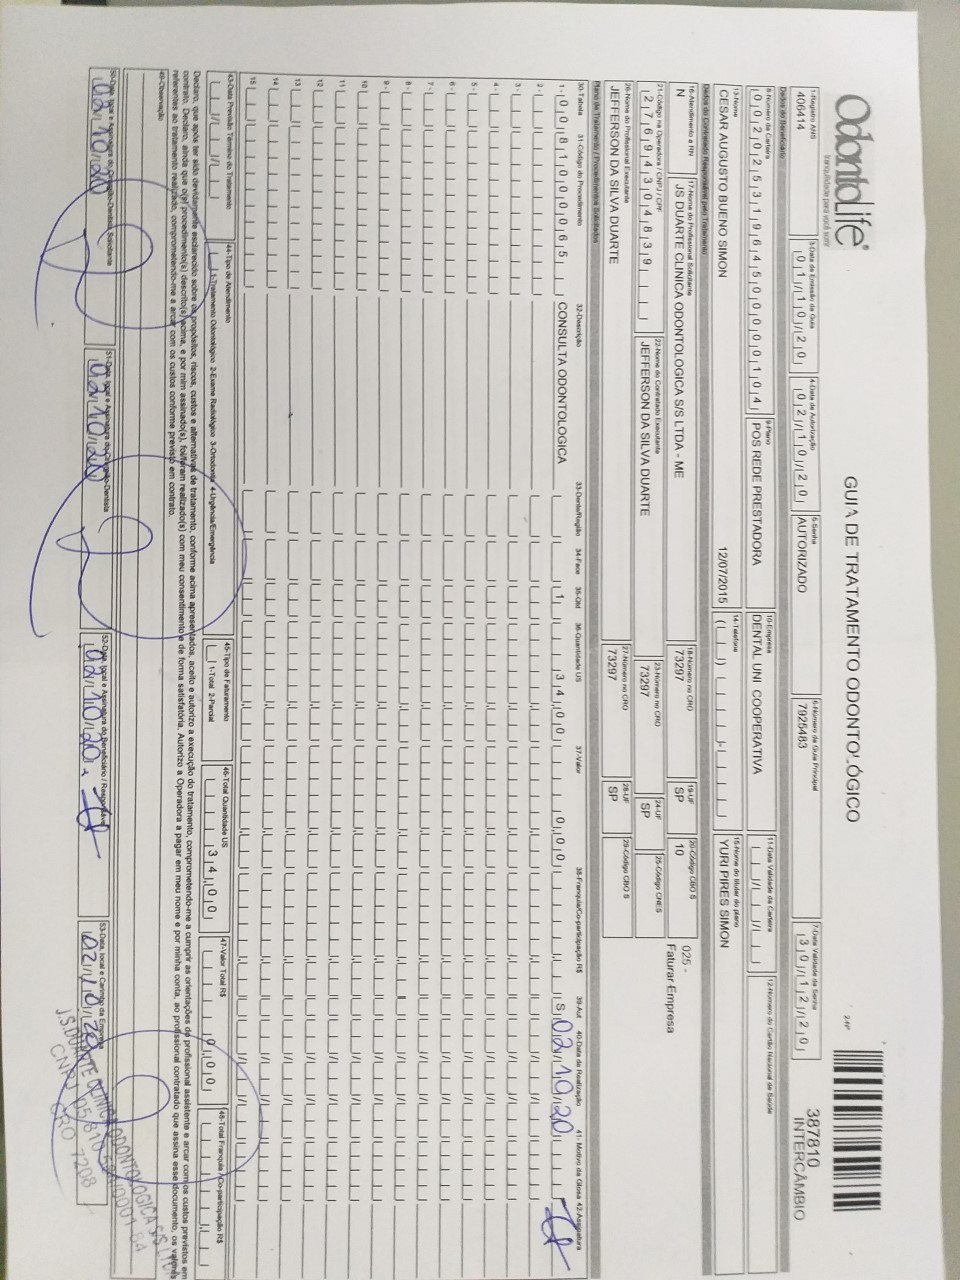 OdontoLife®
tranquilidade para você sorrir
GUIA DE TRATAMENTO ODONTOLÓGICO
24P
387810
INTERCÂMBIO
1-Registro ANS
406414
3-Data de Emissão da Guia
01/10/20
4-Data de Autorização
02/10/20
5-Senha
AUTORIZADO
6-Número da Guia Principal
7925483
7-Data Validade da Senha
30/12/20
Dados do Beneficiário
8-Número da Carteira
00202531964500000104
9-Plano
POS REDE PRESTADORA
10-Empresa
DENTAL UNI COOPERATIVA
11-Data Validade da Carteira
12-Número do Cartão Nacional de Saúde
13-Nome
CESAR AUGUSTO BUENO SIMON
12/07/2015
14-Telefone
15-Nome do titular do plano
YURI PIRES SIMON
Dados do Contratado Responsável pelo Tratamento
16-Atendimento a RN
N
17-Nome do Profissional Solicitante
JS DUARTE CLINICA ODONTOLOGICA S/S LTDA - ME
18-Número no CRO
73297
19-UF
SP
20-Código CBO S
10
025 -
Faturar Empresa
21-Código na Operadora / CNPJ / CPF
27694304839
22-Nome do Contratado Executante
JEFFERSON DA SILVA DUARTE
23-Número no CRO
73297
24-UF
SP
25-Código CNES
26-Nome do Profissional Executante
JEFFERSON DA SILVA DUARTE
27-Número no CRO
73297
28-UF
SP
29-Código CBO S
Plano de Tratamento / Procedimentos Solicitados
30-Tabela 31-Código do Procedimento 32-Descrição 33-Dente/Região 34-Face 35-Qtd 36-Quantidade US 37-Valor 38-Franquia/Co-participação R$ 39-Aut 40-Data de Realização 41- Motivo da Glosa 42-Assinatura
1- 00 81000065 CONSULTA ODONTOLOGICA 1 34,00 0,00 S 02/10/20
2-
3-
4-
5-
6-
7-
8-
9-
10-
11-
12-
13-
14-
15-
43-Data Previsão Término do Tratamento
44-Tipo de Atendimento
1-Tratamento Odontológico 2-Exame Radiológico 3-Ortodontia 4-Urgência/Emergência
45-Tipo de Faturamento
1-Total 2-Parcial
46-Total Quantidade US
34,00
47-Valor Total R$
0,00
48-Total Franquia /Co-participação R$
Declaro, que após ter sido devidamente esclarecido sobre os propósitos, riscos, custos e alternativas de tratamento, conforme acima apresentados, aceito e autorizo a execução do tratamento, comprometendo-me a cumprir as orientações do profissional assistente e arcar com os custos previstos em
contrato. Declaro, ainda que o(s) procedimento(s) descrito(s) acima, e por mim assinado(s), foi/foram realizado(s) com meu consentimento e de forma satisfatória. Autorizo a Operadora a pagar em meu nome e por minha conta, ao profissional contratado que assina esse documento, os valores
referentes ao tratamento realizado, comprometendo-me a arcar com os custos conforme previsto em contrato.
49-Observação
50-Data, local e Assinatura do Cirurgião-Dentista Solicitante
02/10/20
51-Data, local e Assinatura do Cirurgião-Dentista
02/10/20
52-Data, local e Assinatura do Beneficiário / Responsável
02/10/20
53-Data, local e Carimbo da Empresa
02/10/20
J.S.DUARTE CLINICA ODONTOLOGICA S/S LTDA
CNPJ
CRO 7208